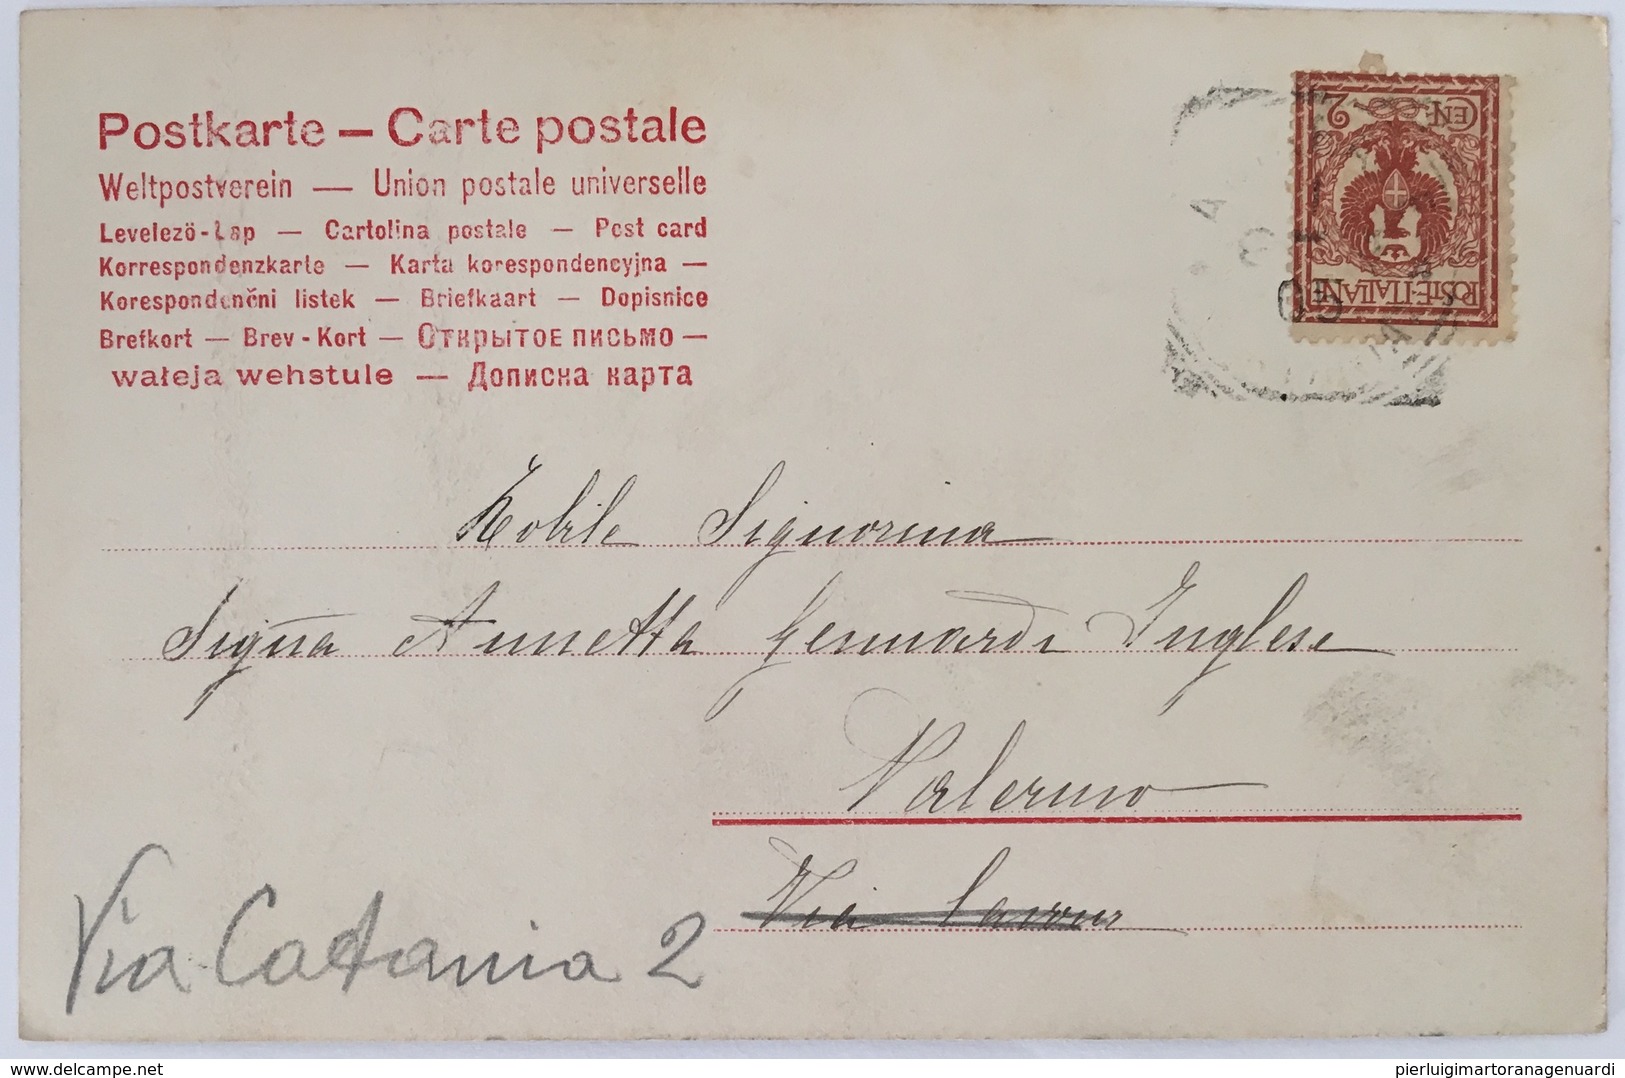 Postkarte — Carte postale
Weltpostverein — Union postale universelle
Levelezö-Lap — Cartolina postale — Post card
Korrespondenzkarte — Karta korespondencyjna —
Korespondenčni listek — Briefkaart — Dopisnice
Brefkort — Brev-Kort — Открытое письмо —
wałeja wehstule — Дописна карта
CEN. 2
POSTE·ITALIANE
05
Nobile Signorina
Sigña Annetta Gennardi Inglese
Palermo
Via Cavour
Via Catania 2
delcampe.net
pierluigimartoranagenuardi